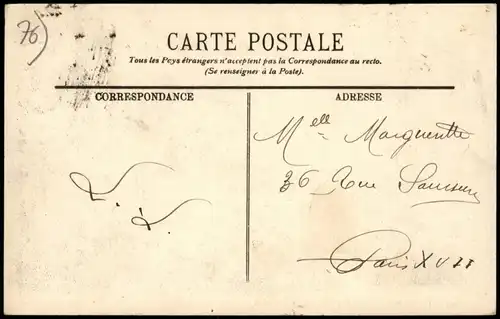 76
CARTE POSTALE
Tous les Pays étrangers n'acceptent pas la Correspondance au recto.
(Se renseigner à la Poste).
CORRESPONDANCE
ADRESSE
Melle Marguerite
36 Rue Saussure
Paris XVII